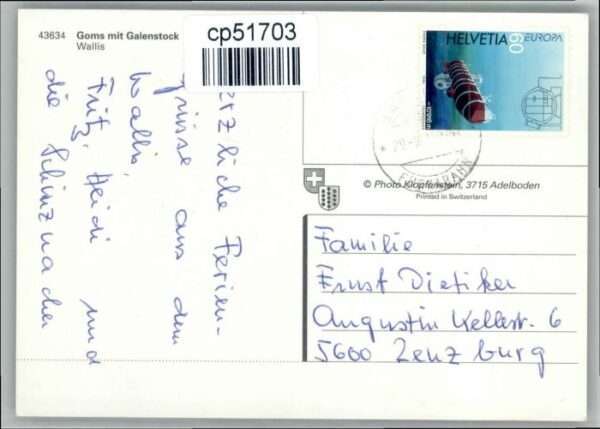 43634 Goms mit Galenstock
Wallis
cp51703
HELVETIA
60
EUROPA
© Photo Klopfenstein, 3715 Adelboden
Printed in Switzerland
erzliche Ferien-
grüsse aus dem
Wallis,
Fritz, Heidi und
die Schinznacher
Familie
Ernst Dietiker
Augustin Kellerstr. 6
5600 Lenzburg